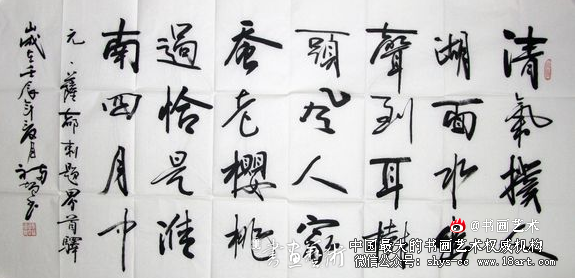 清氣撲人
湖面水
聲到耳樹
頭風人家
蚕老櫻桃
過恰是淮
南四月中
元、薩都剌題界首驛
歲在壬辰年夏月
书画艺术
@书画艺术
中国最大的书画艺术权威机构
微信公众号：shys-cc www.18art.com